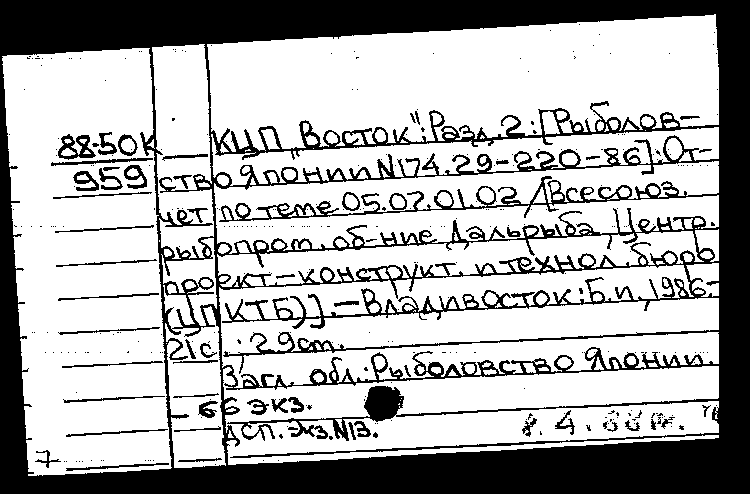 88-50К КЦП „Восток": Разд. 2: [Рыболов-
959 ство Японии N174.29-220-86]: От-
чет по теме 05.07.01.02 /[Всесоюз.
рыбопром. об-ние Дальрыба, Центр.
проект.-конструкт. и технол. бюро
(ЦПКТБ)].-Владивосток: Б.и., 1986.-
21с.; 29см.
Загл. обл.: Рыболовство Японии.
- 66 экз.
ДСП. Экз. N13.
7